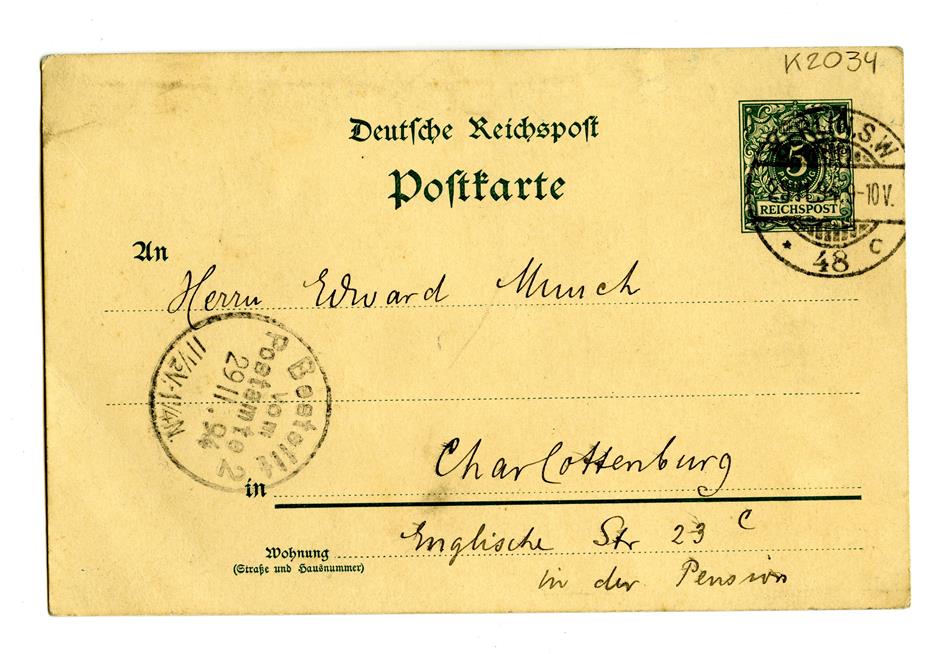 K2034
Deutsche Reichspost
Postkarte
5
PFENNIG
REICHSPOST
BERLIN, S.W.
9-10 V.
* 48 c
An
Herrn Edvard Munch
Bestellt
vom
Postamte 2
29 11. 94
11½V-1¼N
in
Charlottenburg
Wohnung
(Straße und Hausnummer)
Englische Str 23 c
in der Pension